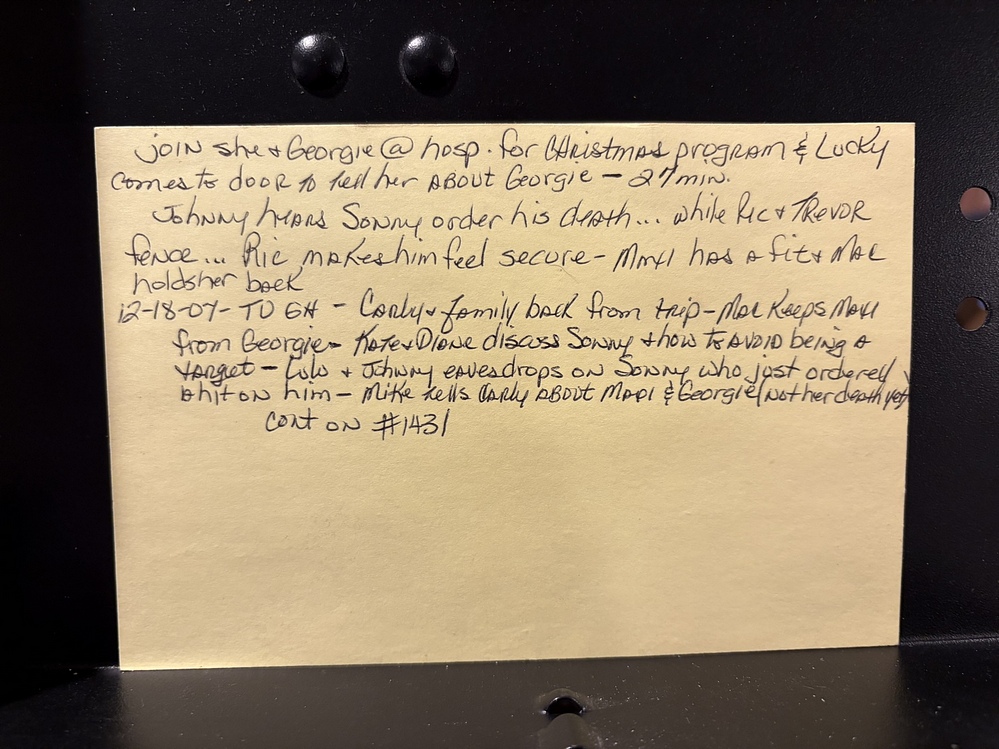 join she & Georgie @ hosp. for CHRistmas program & Lucky
comes to door to tell her ABOUT Georgie - 27 min.
Johnny hears Sonny order his death... while Ric & TREVOR
fence... Ric makes him feel secure - Maxi has a fit & Mac
holds her back
12-18-07 - TO GH - Carly & family back from trip - Mac keeps Maxi
from Georgie - Kate & Diane discuss Sonny & how to AVOID being a
target - Lulu & Johnny eavesdrops on Sonny who just ordered
a hit on him - Mike tells Carly ABOUT Maxi & Georgie (not her death yet)
cont on #1431